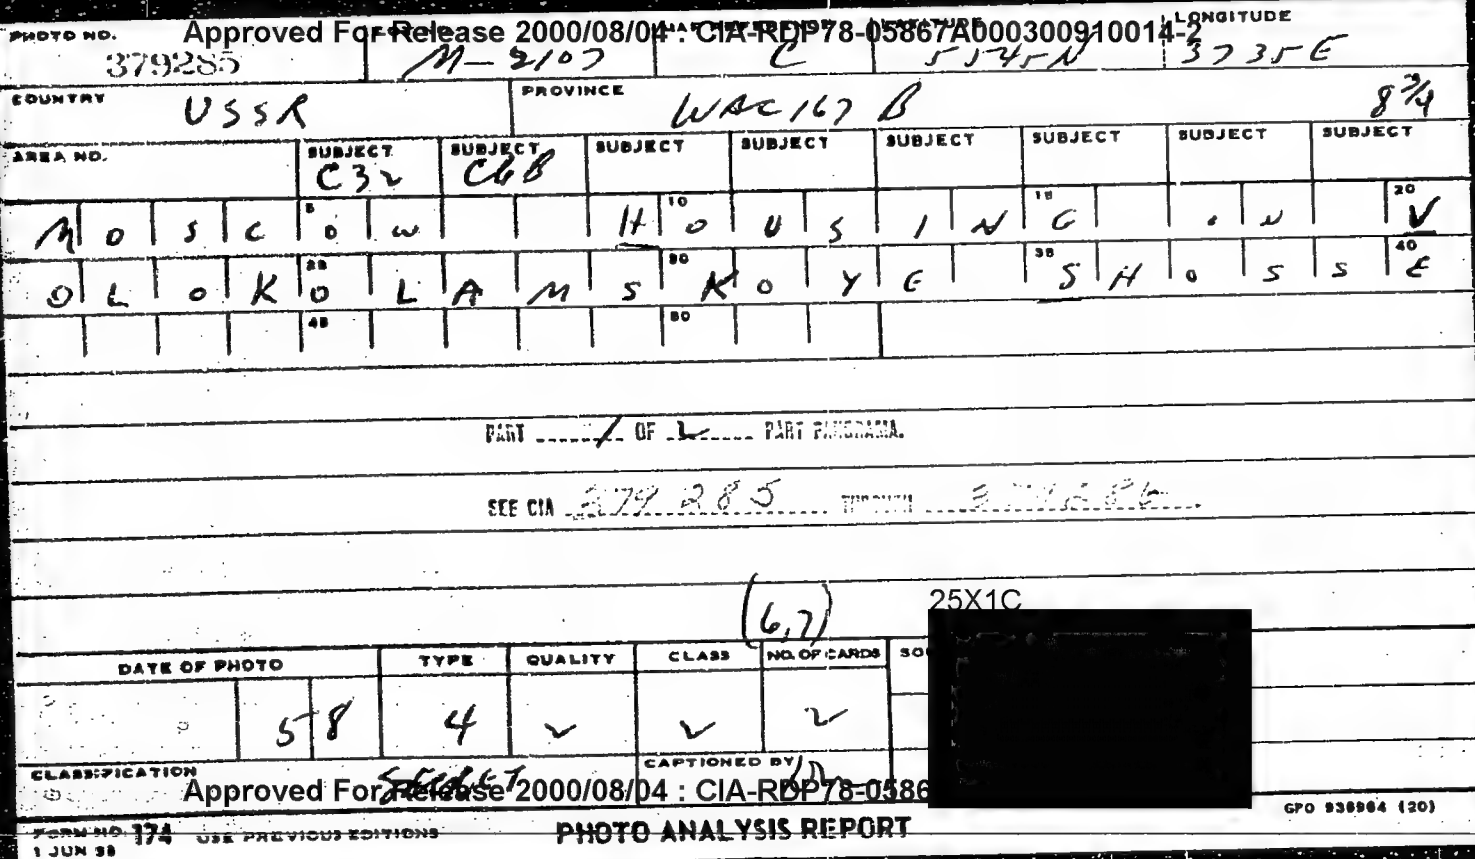 Approved For Release 2000/08/04 : CIA-RDP78-05867A000300910014-2
PHOTO NO. LONGITUDE
379285 M-2107 C 5545N 3735E
COUNTRY USSR PROVINCE WAC 167 B 8 3/4
AREA NO. SUBJECT SUBJECT SUBJECT SUBJECT SUBJECT SUBJECT SUBJECT SUBJECT
C32 C6B
5 10 15 20
MOSCOW HOUSING . N V
25 30 35 40
OLOKOLAMSKOYE SHOSSE
45 50
PART 1 OF 2 PART PANORAMA.
SEE CIA 379285 THROUGH 379286
(6,7)
25X1C
DATE OF PHOTO TYPE QUALITY CLASS NO. OF CARDS
58 4 2 2 2
CLASSIFICATION SECRET CAPTIONED BY
Approved For Release 2000/08/04 : CIA-RDP78-0586
GPO 936964 (20)
FORM NO. 174 USE PREVIOUS EDITIONS PHOTO ANALYSIS REPORT
1 JUN 58